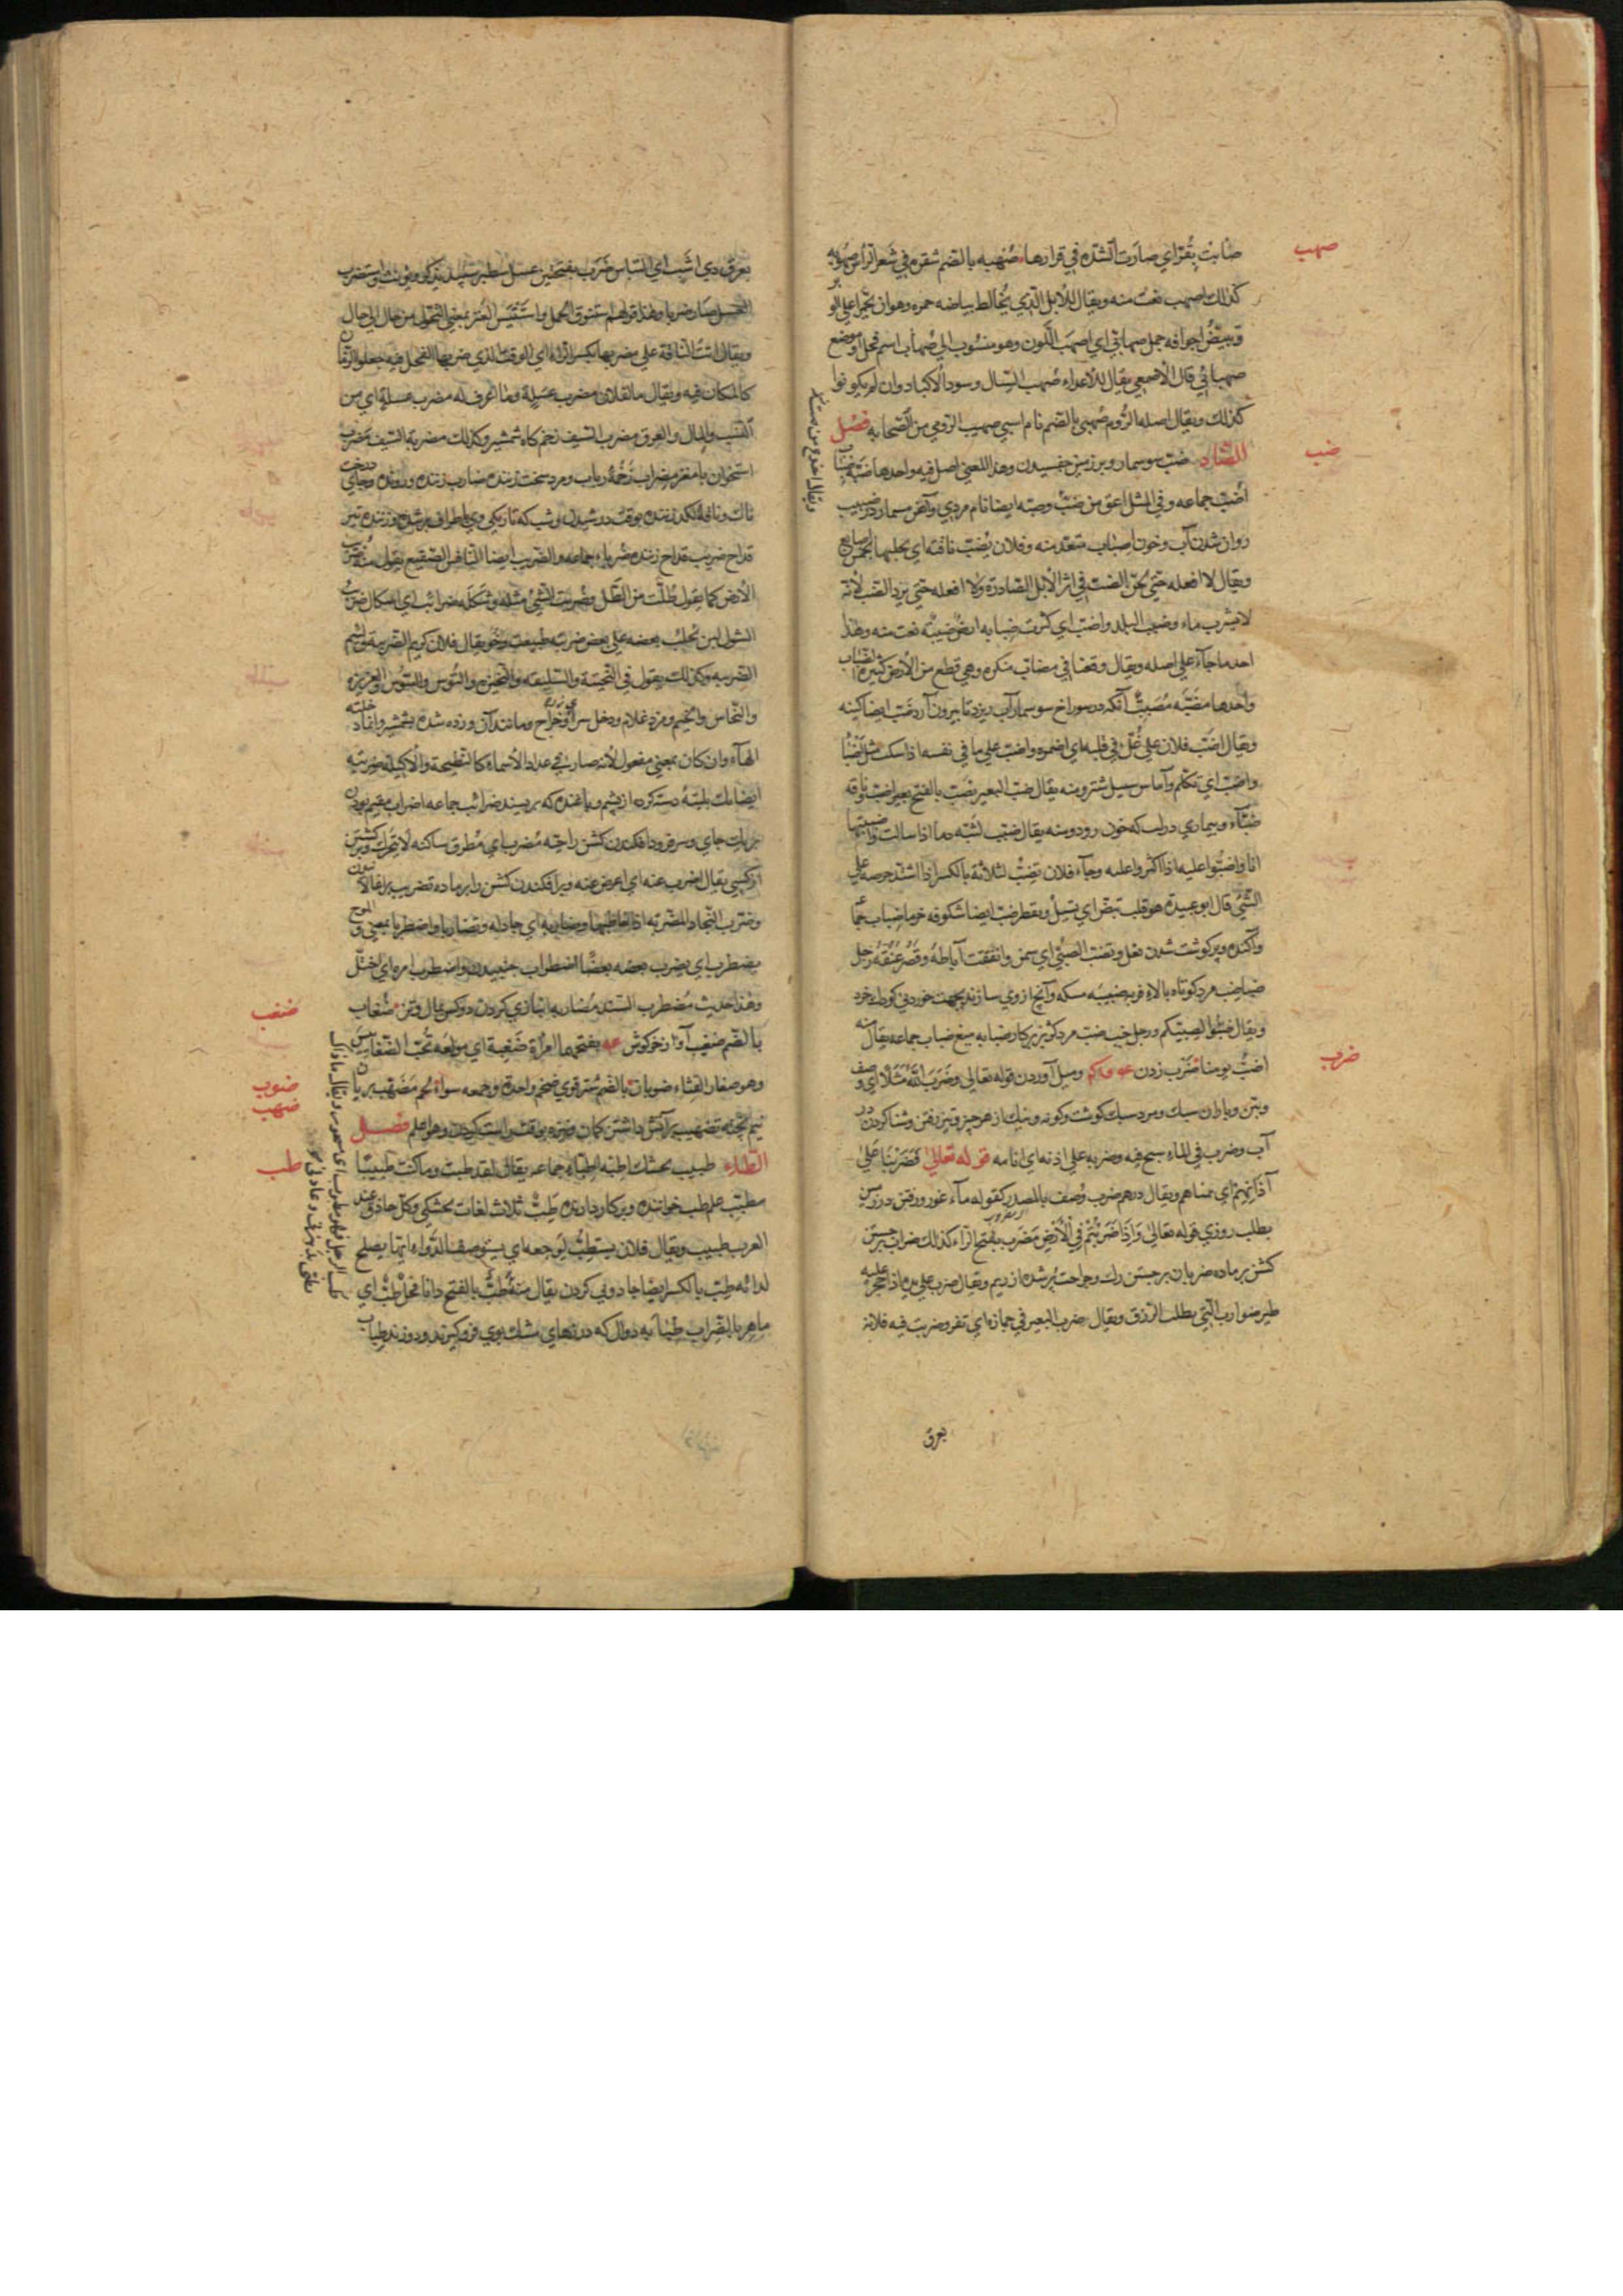 صهب
صابت بقر اي صارت الشده في قرارها صهبه بالضم شقره في شعر الراس صهوبه
كذلك اصهب نعت منه ويقال للابل الذي يخالط بياضه حمره وهو ان يحمر اعلي الوبر
وتبيض اجوافه جمل صهابي اي اصهب اللون وهو منسوب الي صهاب اسم فحل او موضع
صهبائي قال الاصمعي يقال للاعداء صهب السبال وسود الاكباد وان لم يكونوا
كذلك ويقال اصله الروم صهبي بالضم نام اسبي صهيب الرومي من الصحابه فصل
ضب
الضاد ضب سوسمار وبر زمين جفسيدن وهذا المعني اصل فيه واحدها ضبه ضباب
اضب جماعه وفي المثل اعق من ضب وضبه ايضا نام مردي وآهن مسمار در ضبيب
روان شدن آب وخون اضباب متعد منه وفلان يضب ناقته اي يحلبها بخمس اصابع
ويقال لا افعله حتي يحن الضب في اثر الابل الصادرة ولا افعله حتي يرد الضب لانه
لا يشرب ماء وضبب البلد واضب اي كثرت ضبابه ارض ضببه نعت منه وهذا
احد ما جاء علي اصله ويقال وقعنا في مضاب منكره وهي قطع من الارض كثيرة الضباب
واحدها مضبه مضبب آنكه در سوراخ سوسمار آب ريزد تا بيرون آرد ضب ايضا كينه
ويقال اضب فلان علي غل في قلبه اي اضمره واضب علي ما في نفسه اذا سكت مثل اضبا
واضب اي تكلم وآماس سبيل شتر ومنه يقال ضب البعير يضب بالفتح بعير اضب ناقه
ضباء وبيماري در لب كه خون رود ومنه يقال ضبب لثته دما اذا سالت واضببتها
انا واضبوا عليه اذا اكثروا عليه وجاء فلان تضب لثاته بالكسر اذا اشتد حرصه علي
الشئ قال ابو عبيدة هو قلب تبض اي تسل وتقطر ضب ايضا شكوفه خرما ضباب جما
وآكنده وپر كوشت شدن بغل وتضبب الصبي اي سمن وانفتقت آباطه وقصر عنقه رجل
ضباضب مرد كوتاه بالاء فربه ضبيبه مسكه وآنچ ازوي سازند بجهت خوردني كودك خرد
ويقال ضببوا لصبيكم ورجل خب ضب مرد كربز پر كار ضبابه ميغ ضباب جماعه يقال منه
ضرب
اضب يومنا ضرب زدن وميل آوردن قوله تعالي وضرب الله مثلا اي وصف
وبتن وباران سبك ومرد سبك كوشت وكونه ونيك از هر چيز وتيز رفتن وشنا كردن در
آب وضرب في الماء سبح فيه وضربه علي اذنه اي انامه قوله تعالي فضربنا علي
آذانهم اي انمناهم ويقال درهم ضرب وصف بالمصدر كقوله ماء غور ورفتن در زمين
بطلب روزي قوله تعالي واذا ضربتم في الارض مضرب بفتح الراء كذلك ضراب برجستن
كشن بر ماده ضربان برجستن رك وجراحت پر شده از ريم ويقال ضرب علي يده اذا حجر عليه
طير ضوارب التي بطلب الرزق ويقال ضرب البعير في جهازه اي نفر وضربت فيه فلانة
بعرق
بعرق ذي اشب اي التباس ضرب بفتحتين عسل سطبر سپيد يذكر ويؤنث واستضرب
العسل صار ضربا وهذا قولهم استنوق الجمل واستتيس العنز بمعني التحول من حال الي حال
ويقال اتت الناقة علي مضربها بكسر الراء اي الوقت الذي ضربها الفحل فيه جعلوا الزمان
كالمكان فيه ويقال ما لفلان مضرب عسلة وما اعرف له مضرب عسلة اي من
النسب والمال والعرق ومضرب السيف زخم كاه شمشير وكذلك مضربة السيف مضرب
استخوان با مغز مضراب زخمه رباب ومرد سخت زننده ضارب زننده ورونده وجاي درخت
ناك وناقه لكد زننده بوقت دوشيدن وشب كه تاريكي وي باطراف برشود وزننده تير
قداح ضريب قداح زننده ضرباء جماعه والضريب ايضا الصقيع يقول منه ضربت
الارض كما يقول طلت من الطل وضريب الشئ مثله وشكله ضرائب اي اشكال ضريب
الشول لبن يحلب بعضه علي بعض ضريبه طبيعت وخو يقال فلان كريم الضريبة ولئيم
الضريبه وكذلك يقول في النحيتة والسليقة والنحيزه والتوس والسوس والغريزه
والنحاس والخيم ومزد غلام ودخل سرا وخراج ومانند آن وزده شده بشمشير وانما دخلته
الهاء وان كان بمعني مفعول لانه صار في عداد الاسماء كالنطيحة والاكيلة ضريبه
جزيات جاي وسر فرود افكندن كشن راحته مضرب اي مطرق ساكنه لا يتحرك
از كسي يقال اضرب عنه اي اعرض عنه وبرافكندن كشن را بر ماده تضريب
وضرب النجاد المضربة اذا خاطها وضاربه اي جادله وتضاربا واضطربا بمعني والموج
يضطرب اي يضرب بعضه بعضا اضطراب جنبيدن واضطرب امره اي اختل
ضغب
وهذا حديث مضطرب السند مضاربه انبازي كردن دو كس بمال وتن ضغاب
بالضم ضغيب آواز خركوش بفتحها امرأة ضغبة اي مولعة تحب الضغابيس
ضوب
وهو صغار القثاء ضوبان بالضم شتر قوي ضخم واحدة وجمعه سواء لحم مضهب بريان
ضهب
نيم پخته تضهيب بر آتش داشتن كمان ونيزه بوقت راست كردن وهو اعلم فصل
طب
الطاء طبيب بجشك اطبه اطباء جماعه يقال لقد طبت وما كنت طبيبا
متطبب علم طب خواننده وبر كار دارنده طب ثلاث لغات بجشكي وكل حاذق عند
العرب طبيب ويقال فلان يستطب لوجعه اي يستوصف الدواء ايما يصلح
لدائه طب بالكسر ايضا جادوي كردن يقال منه طب بالفتح دانا فحل طب اي
ماهر بالضراب طبابه دوال كه درزهاي مشك بوي فرو كيرند ودوزند طباب